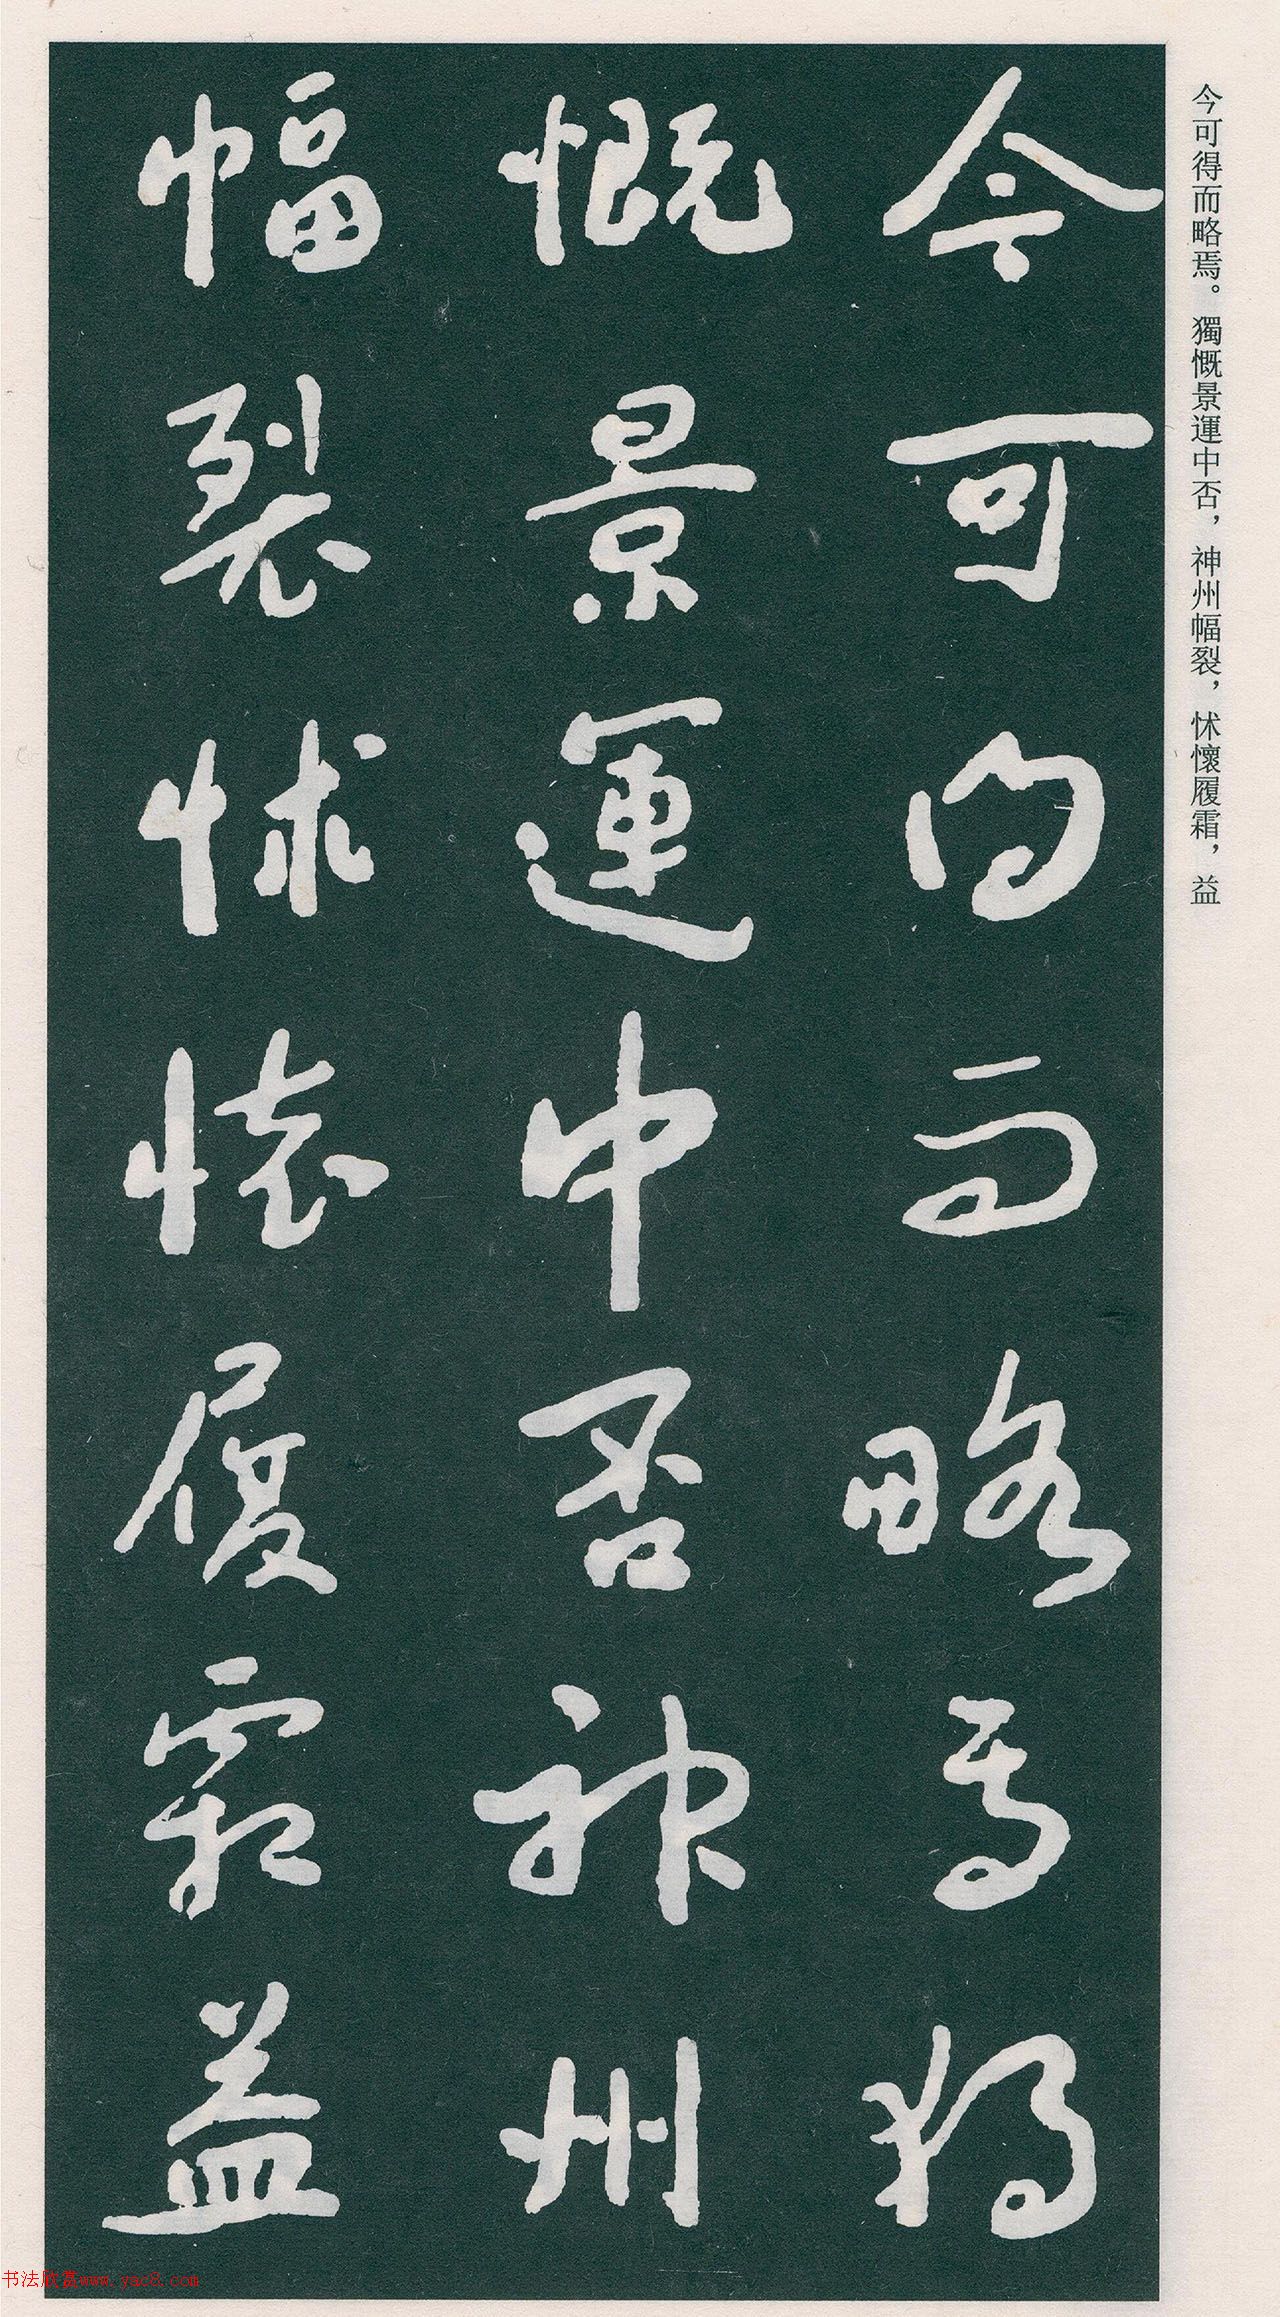 今可得而略焉。獨慨景運中否，神州幅裂，怵懷履霜，益
今可得而略焉獨
慨景運中否神州
幅裂怵懷履霜益
书法欣赏www.yac8.com